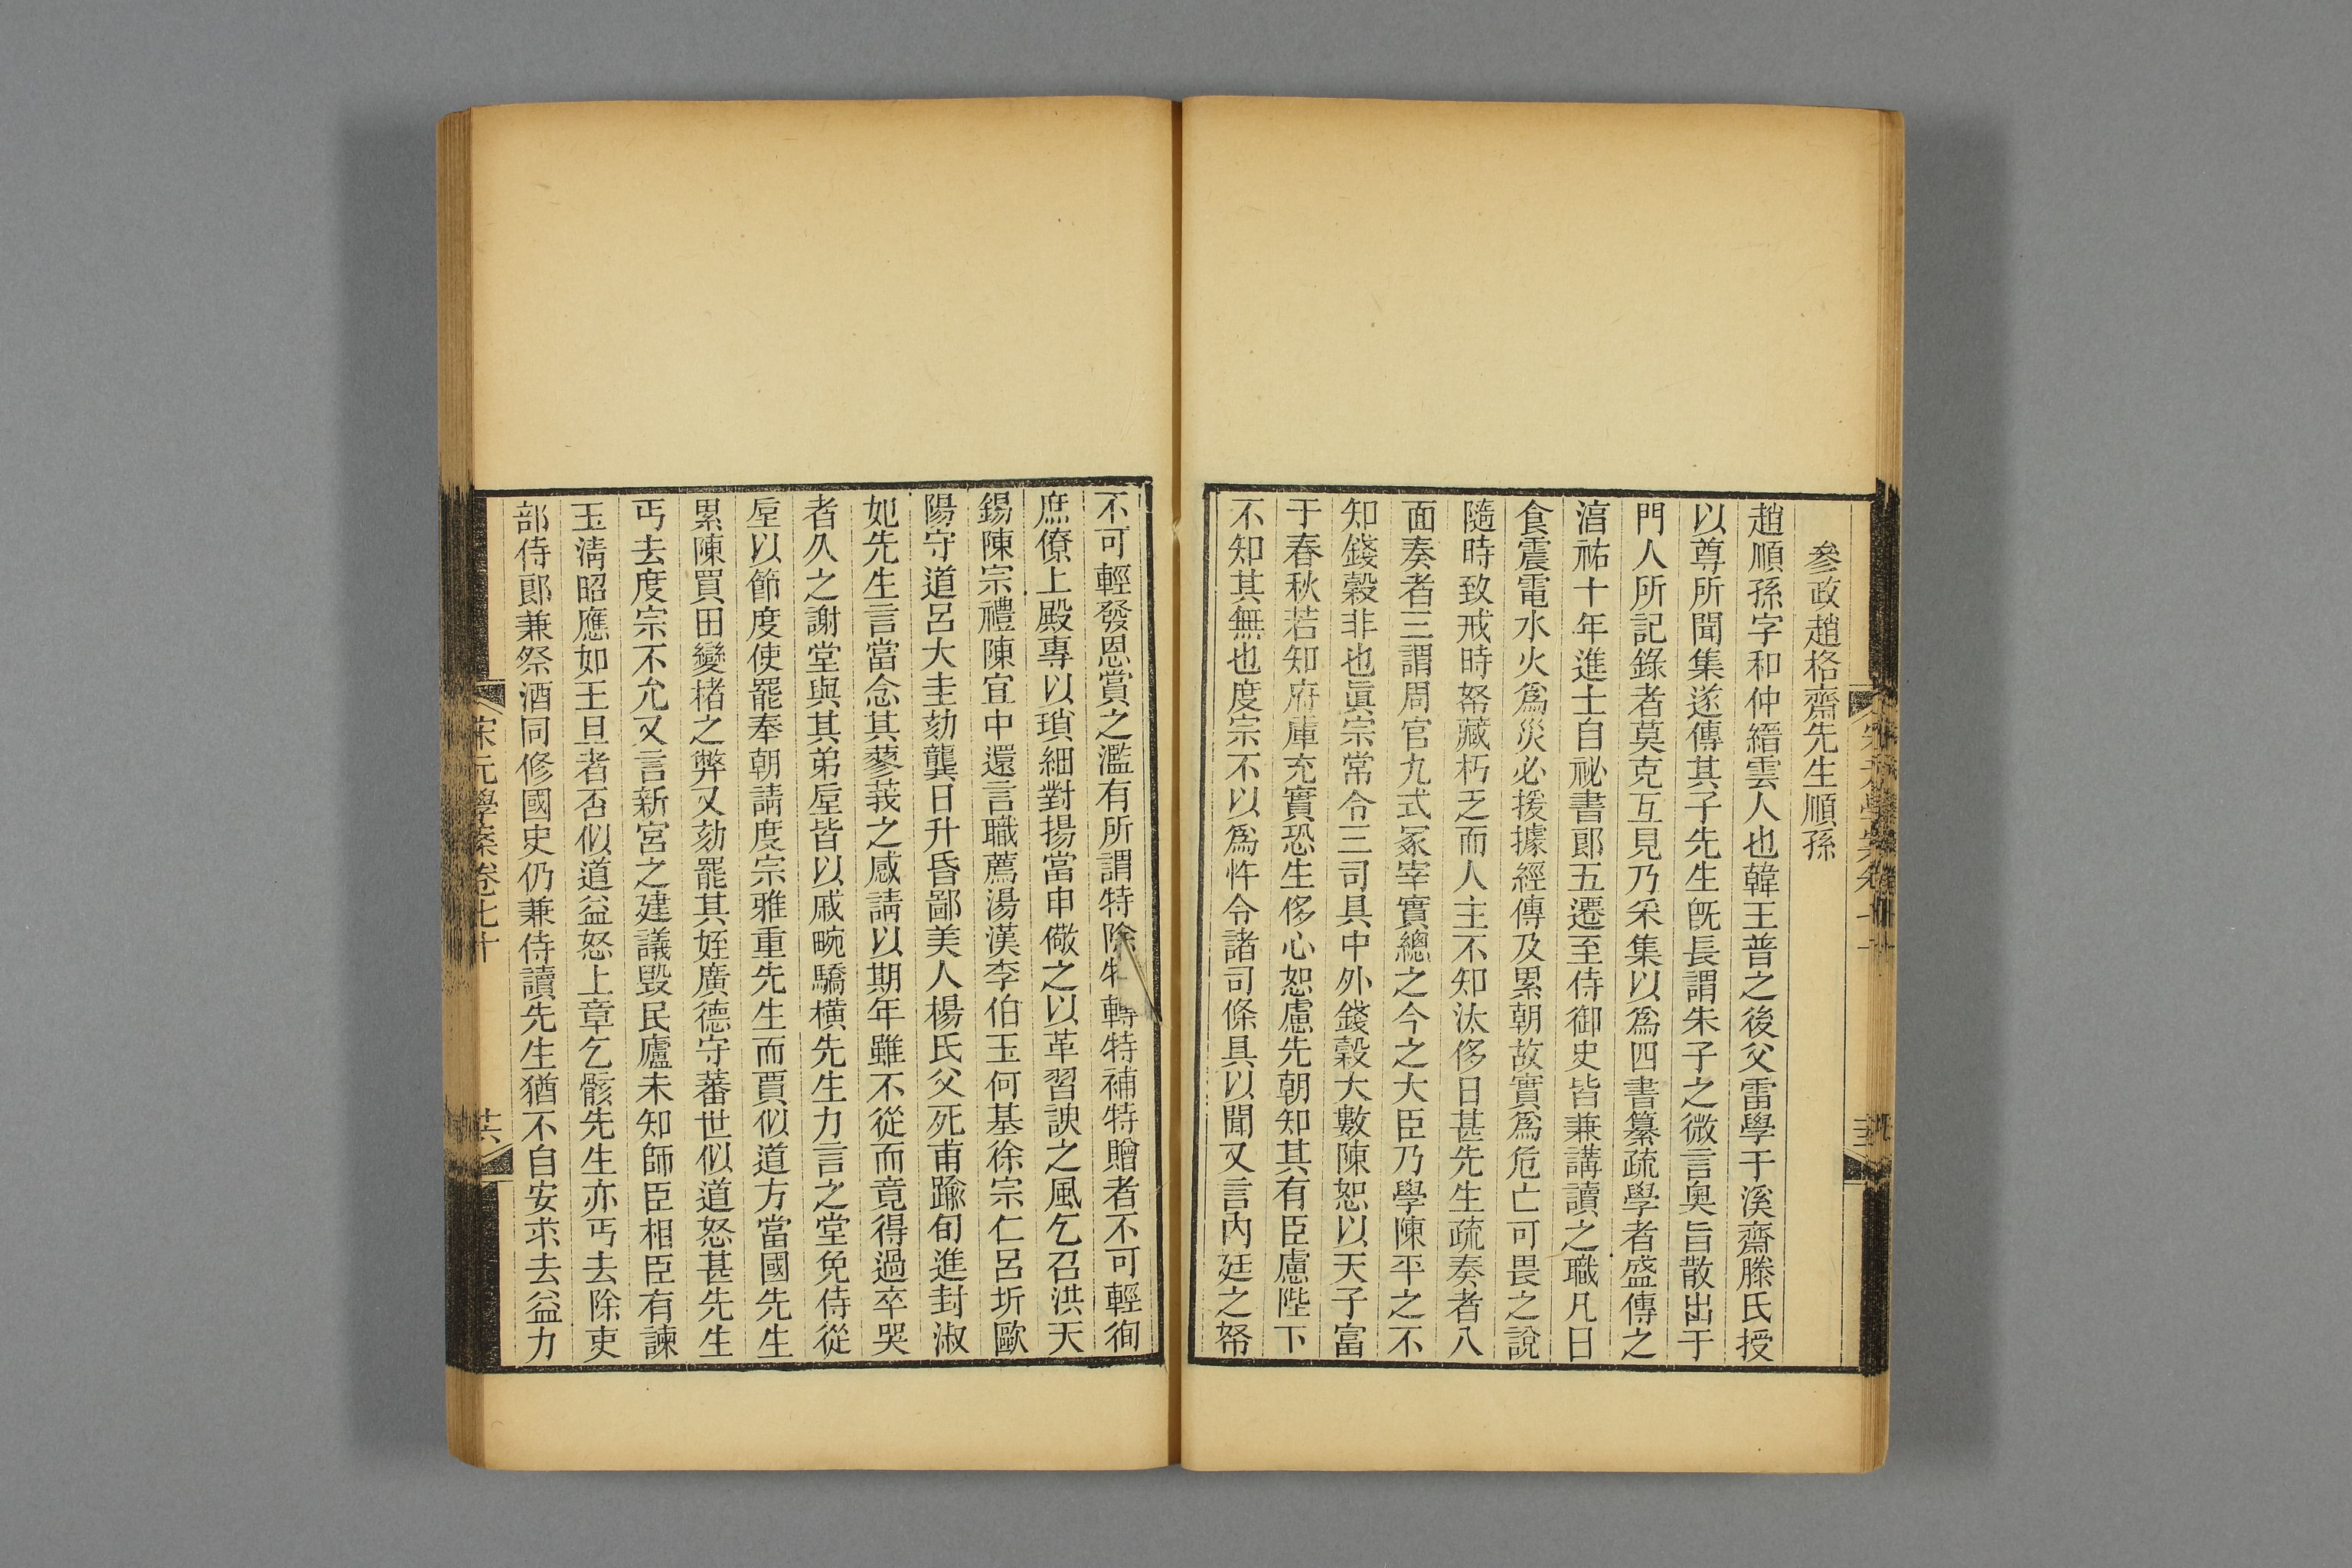 參政趙格齋先生順孫
趙順孫字和仲縉雲人也韓王普之後父雷學于溪齋滕氏授
以尊所聞集遂傳其子先生旣長謂朱子之微言奧旨散出于
門人所記錄者莫克互見乃采集以爲四書纂疏學者盛傳之
湻祐十年進士自祕書郞五遷至侍御史皆兼講讀之職凡日
食震電水火爲災必援據經傳及累朝故實爲危亡可畏之說
隨時致戒時帑藏朽乏而人主不知汰侈日甚先生疏奏者八
面奏者三謂周官九式冢宰實總之今之大臣乃學陳平之不
知錢穀非也眞宗常令三司具中外錢穀大數陳恕以天子富
于春秋若知府庫充實恐生侈心恕慮先朝知其有臣慮陛下
不知其無也度宗不以爲忤令諸司條具以聞又言內廷之帑
不可輕發恩賞之濫有所謂特除特轉特補特贈者不可輕徇
庶僚上殿專以瑣細對揚當申儆之以革習諛之風乞召洪天
錫陳宗禮陳宜中還言職薦湯漢李伯玉何基徐宗仁呂圻歐
陽守道呂大圭劾龔日升昏鄙美人楊氏父死甫踰旬進封淑
妃先生言當念其蓼莪之感請以期年雖不從而竟得過卒哭
者久之謝堂與其弟垕皆以戚畹驕橫先生力言之堂免侍從
垕以節度使罷奉朝請度宗雅重先生而賈似道方當國先生
累陳買田變楮之弊又劾罷其姪廣德守蕃世似道怒甚先生
丐去度宗不允又言新宮之建議毀民廬未知師臣相臣有諫
玉淸昭應如王旦者否似道益怒上章乞骸先生亦丐去除吏
部侍郞兼祭酒同修國史仍兼侍讀先生猶不自安求去益力
宋元學案卷七十
廿六